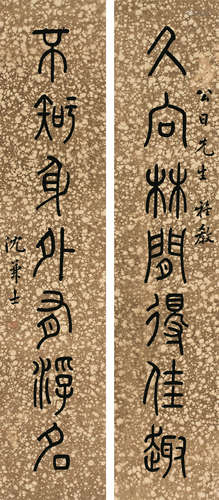 久向林間得佳趣
公日先生雅教
不知身外有浮名
沈兼士